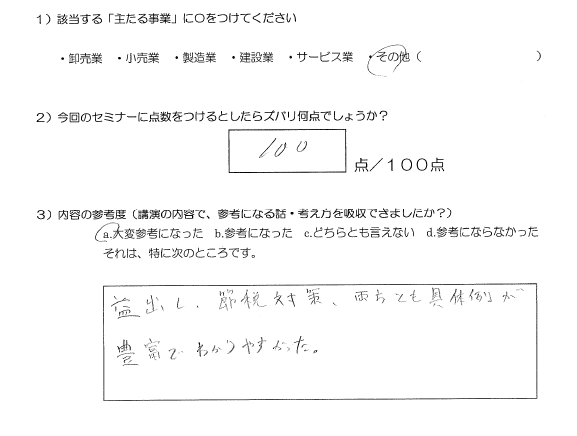 1）該当する「主たる事業」に〇をつけてください
・卸売業　・小売業　・製造業　・建設業　・サービス業　・その他（　　　　　　　　）
2）今回のセミナーに点数をつけるとしたらズバリ何点でしょうか？
100
点／100点
3）内容の参考度（講演の内容で、参考になる話・考え方を吸収できましたか？）
a.大変参考になった　b.参考になった　c.どちらとも言えない　d.参考にならなかった
それは、特に次のところです。
益出し、節税対策、両方とも具体例が
豊富でわかりやすかった。